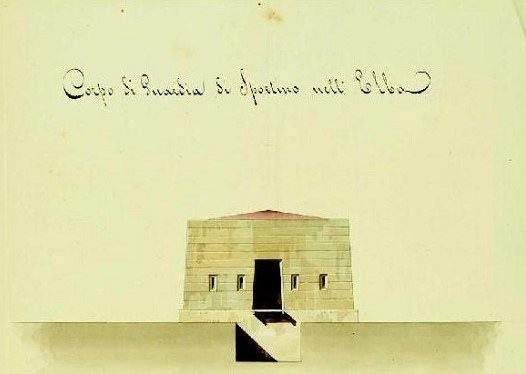 Corpo di Guardia di nell' Elba